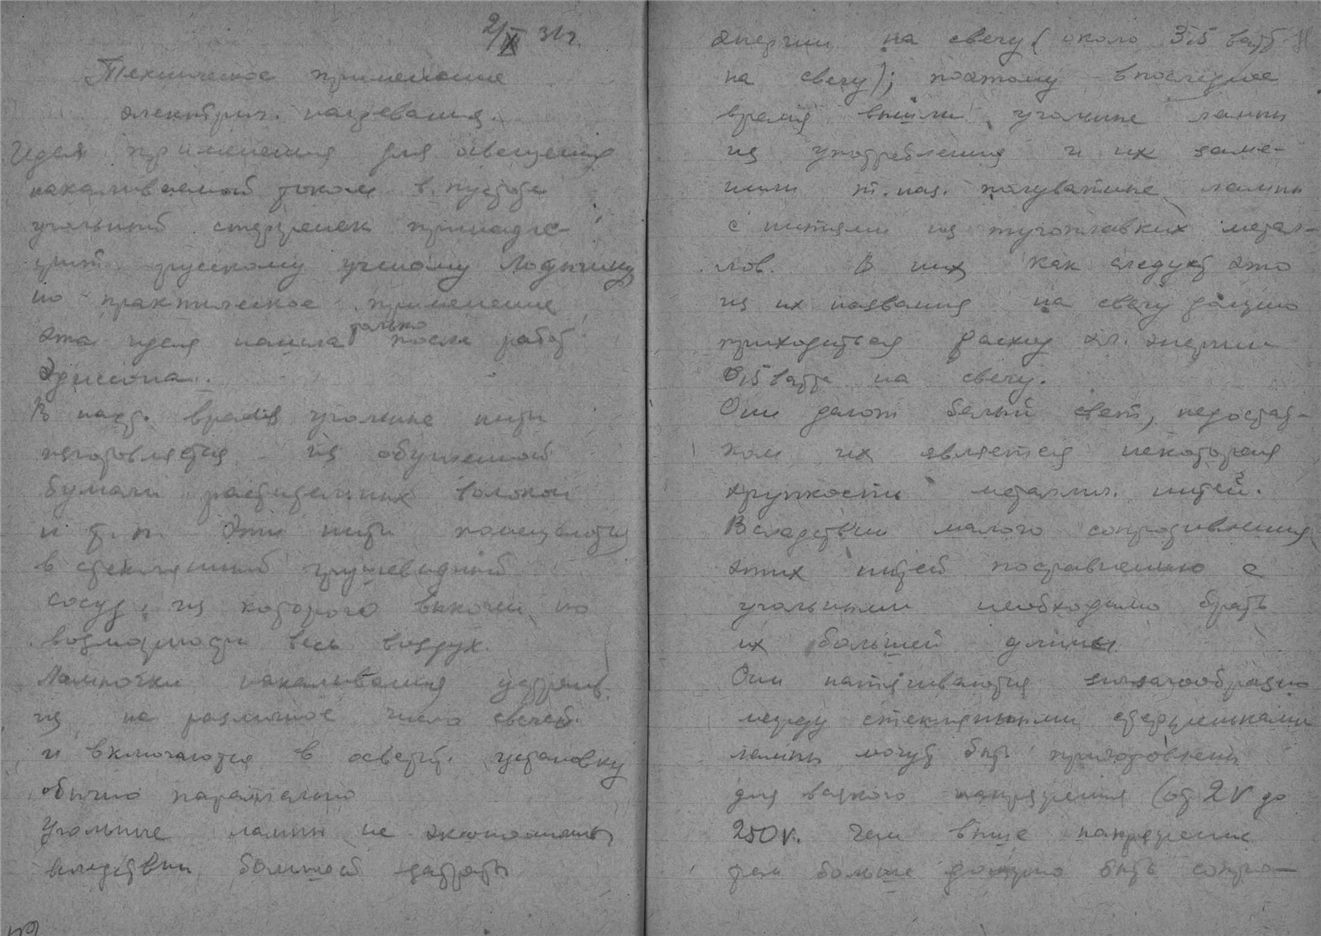 2/X 31г.
Техническое применение
электрич. нагревания.
Идея применения для освещения
накаливаемой током в пустоте
угольный стержень принадле-
жит русскому ученому Лодыгину
но практическое применение
эта идея нашла только после работ
Эдиссона.
В наст. время угольные нити
изготовляются из обугленной
бумаги растительных волокон
и т.п. Эти нити помещаются
в стеклянный грушевидный
сосуд, из которого выкачен по
возможности весь воздух.
Лампочки накаливания устраив.
на различное число свечей
и включаются в осветит. установку
обычно параллельно
Угольные лампы не экономичны
вследствии большой затраты
энергии на свечу (около 3,5 ватт
на свечу); поэтому в последнее
время вышли угольные лампы
из употребления и их заме-
нили т.наз. полуватные лампы
с нитями из тугоплавких метал-
лов. В них как следует это
из их названия на свечу должно
приходиться расход эл. энергии
0,5 ватт на свечу.
Они дают белый свет, недостат-
ком их является некоторая
хрупкость металлич. нитей.
Вследствии малого сопротивления
этих нитей посравнению с
угольными необходимо брать
их большей длины
Они натягиваются зигзагообразно
между стеклянными стерженьками
лампы могут быть приготовлены
для всякого напряжения (от 2v до
250v. Чем выше напряжение
тем больше должно быть сопро-